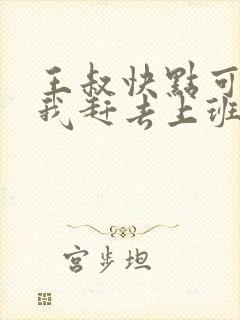 王叔快點可
我赶去上班
宫步坦